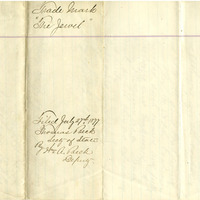 Trade Mark
"The Jewel"
Filed July 17th 1877
Thomas Beck
Secy of State
By
Beck
Deputy